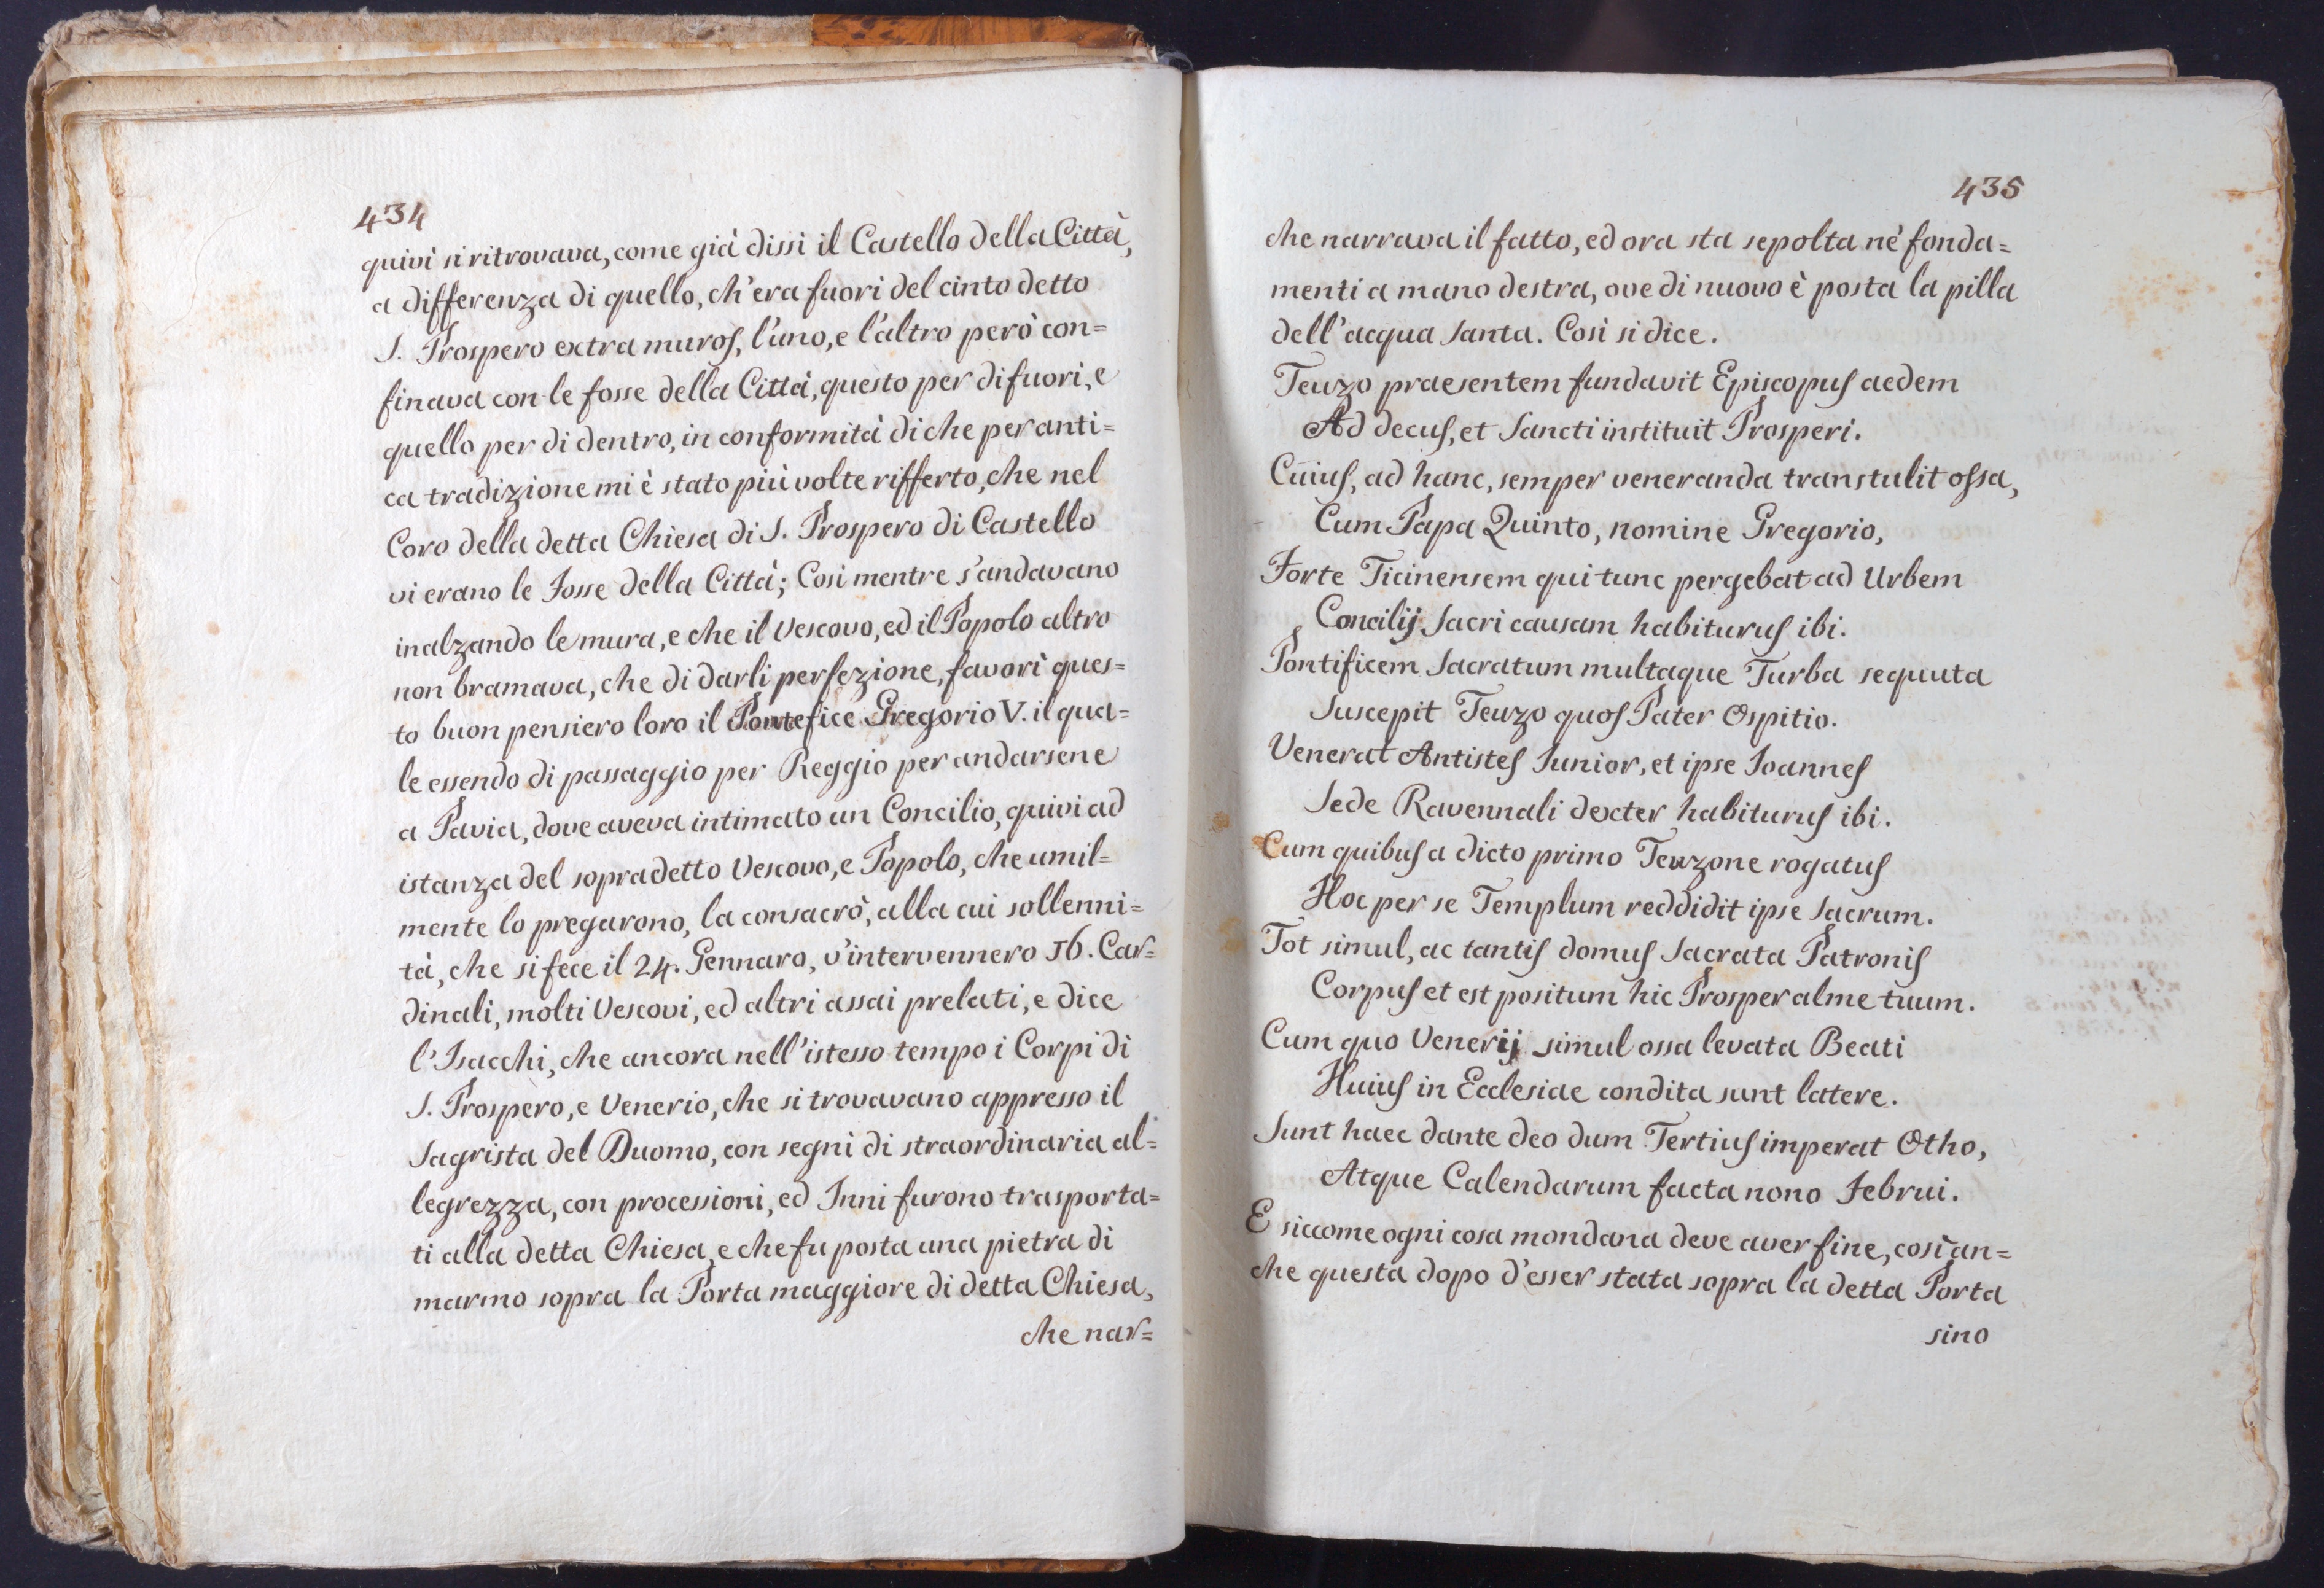 434
quivi si ritrovava, come già dissi il Castello della Città,
a differenza di quello, ch'era fuori del cinto detto
S. Prospero extra muros, l'uno, e l'altro però con=
finava con le fosse della Città, questo per di fuori, e
quello per di dentro, in conformità di che per anti=
ca tradizione mi è stato più volte rifferto, che nel
Coro della detta Chiesa di S. Prospero di Castello
vi erano le Fosse della Città; Così mentre s'andavano
inalzando le mura, e che il Vescovo, ed il Popolo altro
non bramava, che di darli perfezione, favorì ques=
to buon pensiero loro il Pontefice Gregorio V. il qua=
le essendo di passaggio per Reggio per andarsene
a Pavia, dove aveva intimato un Concilio, quivi ad
istanza del sopradetto Vescovo, e Popolo, che umil=
mente lo pregarono, la consacrò, alla cui sollenni=
tà, che si fece il 24. Gennaro, v'intervennero 16. Car=
dinali, molti Vescovi, ed altri assai prelati, e dice
l'Isacchi, che ancora nell'istesso tempo i Corpi di
S. Prospero, e Venerio, che si trovavano appresso il
Sagrista del Duomo, con segni di straordinaria al=
legrezza, con processioni, ed Inni furono trasporta=
ti alla detta Chiesa, e che fu posta una pietra di
marmo sopra la Porta maggiore di detta Chiesa,
che nar=
435
che narrava il fatto, ed ora sta sepolta nè fonda=
menti a mano destra, ove di nuovo è posta la pilla
dell'acqua Santa. Così si dice.
Teuzo praesentem fundavit Episcopus aedem
Ad decus, et Sancti instituit Prosperi.
Cuius, ad hanc, semper veneranda transtulit ossa,
Cum Papa Quinto, nomine Gregorio,
Forte Ticinensem qui tunc pergebat ad Urbem
Concilij Sacri causam habiturus ibi.
Pontificem Sacratum multaque Turba sequuta
Suscepit Teuzo quos Pater Ospitio.
Venerat Antistes Iunior, et ipse Ioannes
Sede Ravennali dexter habiturus ibi.
Cum quibus a dicto primo Teuzone rogatus
Hoc per se Templum reddidit ipse Sacrum.
Tot simul, ac tantis domus Sacrata Patronis
Corpus et est positum hic Prosper alme tuum.
Cum quo Venerij simul ossa levata Beati
Huius in Ecclesiae condita sunt latere.
Sunt haec dante deo dum Tertius imperat Otho,
Atque Calendarum facta nono Februi.
E siccome ogni cosa mondana deve aver fine, così an=
che questa dopo d'esser stata sopra la detta Porta
sino